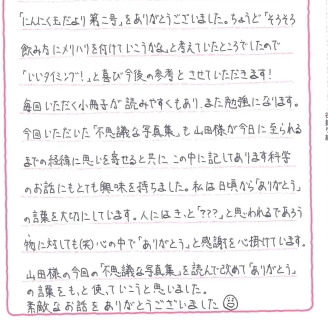 「にんにく玉だより第二号」をありがとうございました。ちょうど「そろそろ
飲み方にメリハリを付けていこうかな」と考えていたところでしたので
「いいタイミング!」と喜び今後の参考とさせていただきます!
毎回いただく小冊子が読みやすくもあり、また勉強になります。
今回いただいた「不思議な写真集」も山田様が今日に至られる
までの経緯に思いを寄せると共にこの中に記してあります科学
のお話にもとても興味を持ちました。私は日頃から「ありがとう」
の言葉を大切にしています。人にはきっと「???」と思われるであろう
物に対しても(笑)心の中で「ありがとう」と感謝を心掛けています。
山田様の今回の「不思議な写真集」を読んで改めて「ありがとう」
の言葉をもっと使っていこうと思いました。
素敵なお話をありがとうございました